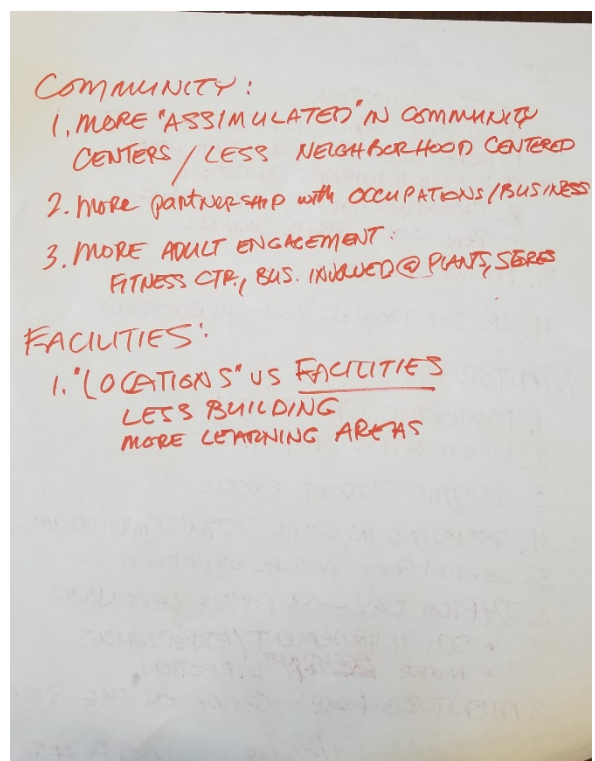 COMMUNITY:
1. MORE "ASSIMULATED" IN COMMUNITY
CENTERS / LESS NEIGHBORHOOD CENTERED
2. MORE PARTNERSHIP with OCCUPATIONS/BUSINESS
3. MORE ADULT ENGAGEMENT:
FITNESS CTR., BUS. INVOLVED @ PLANTS,
FACILITIES:
1. "LOCATIONS" VS FACILITIES
LESS BUILDING
MORE LEARNING AREAS